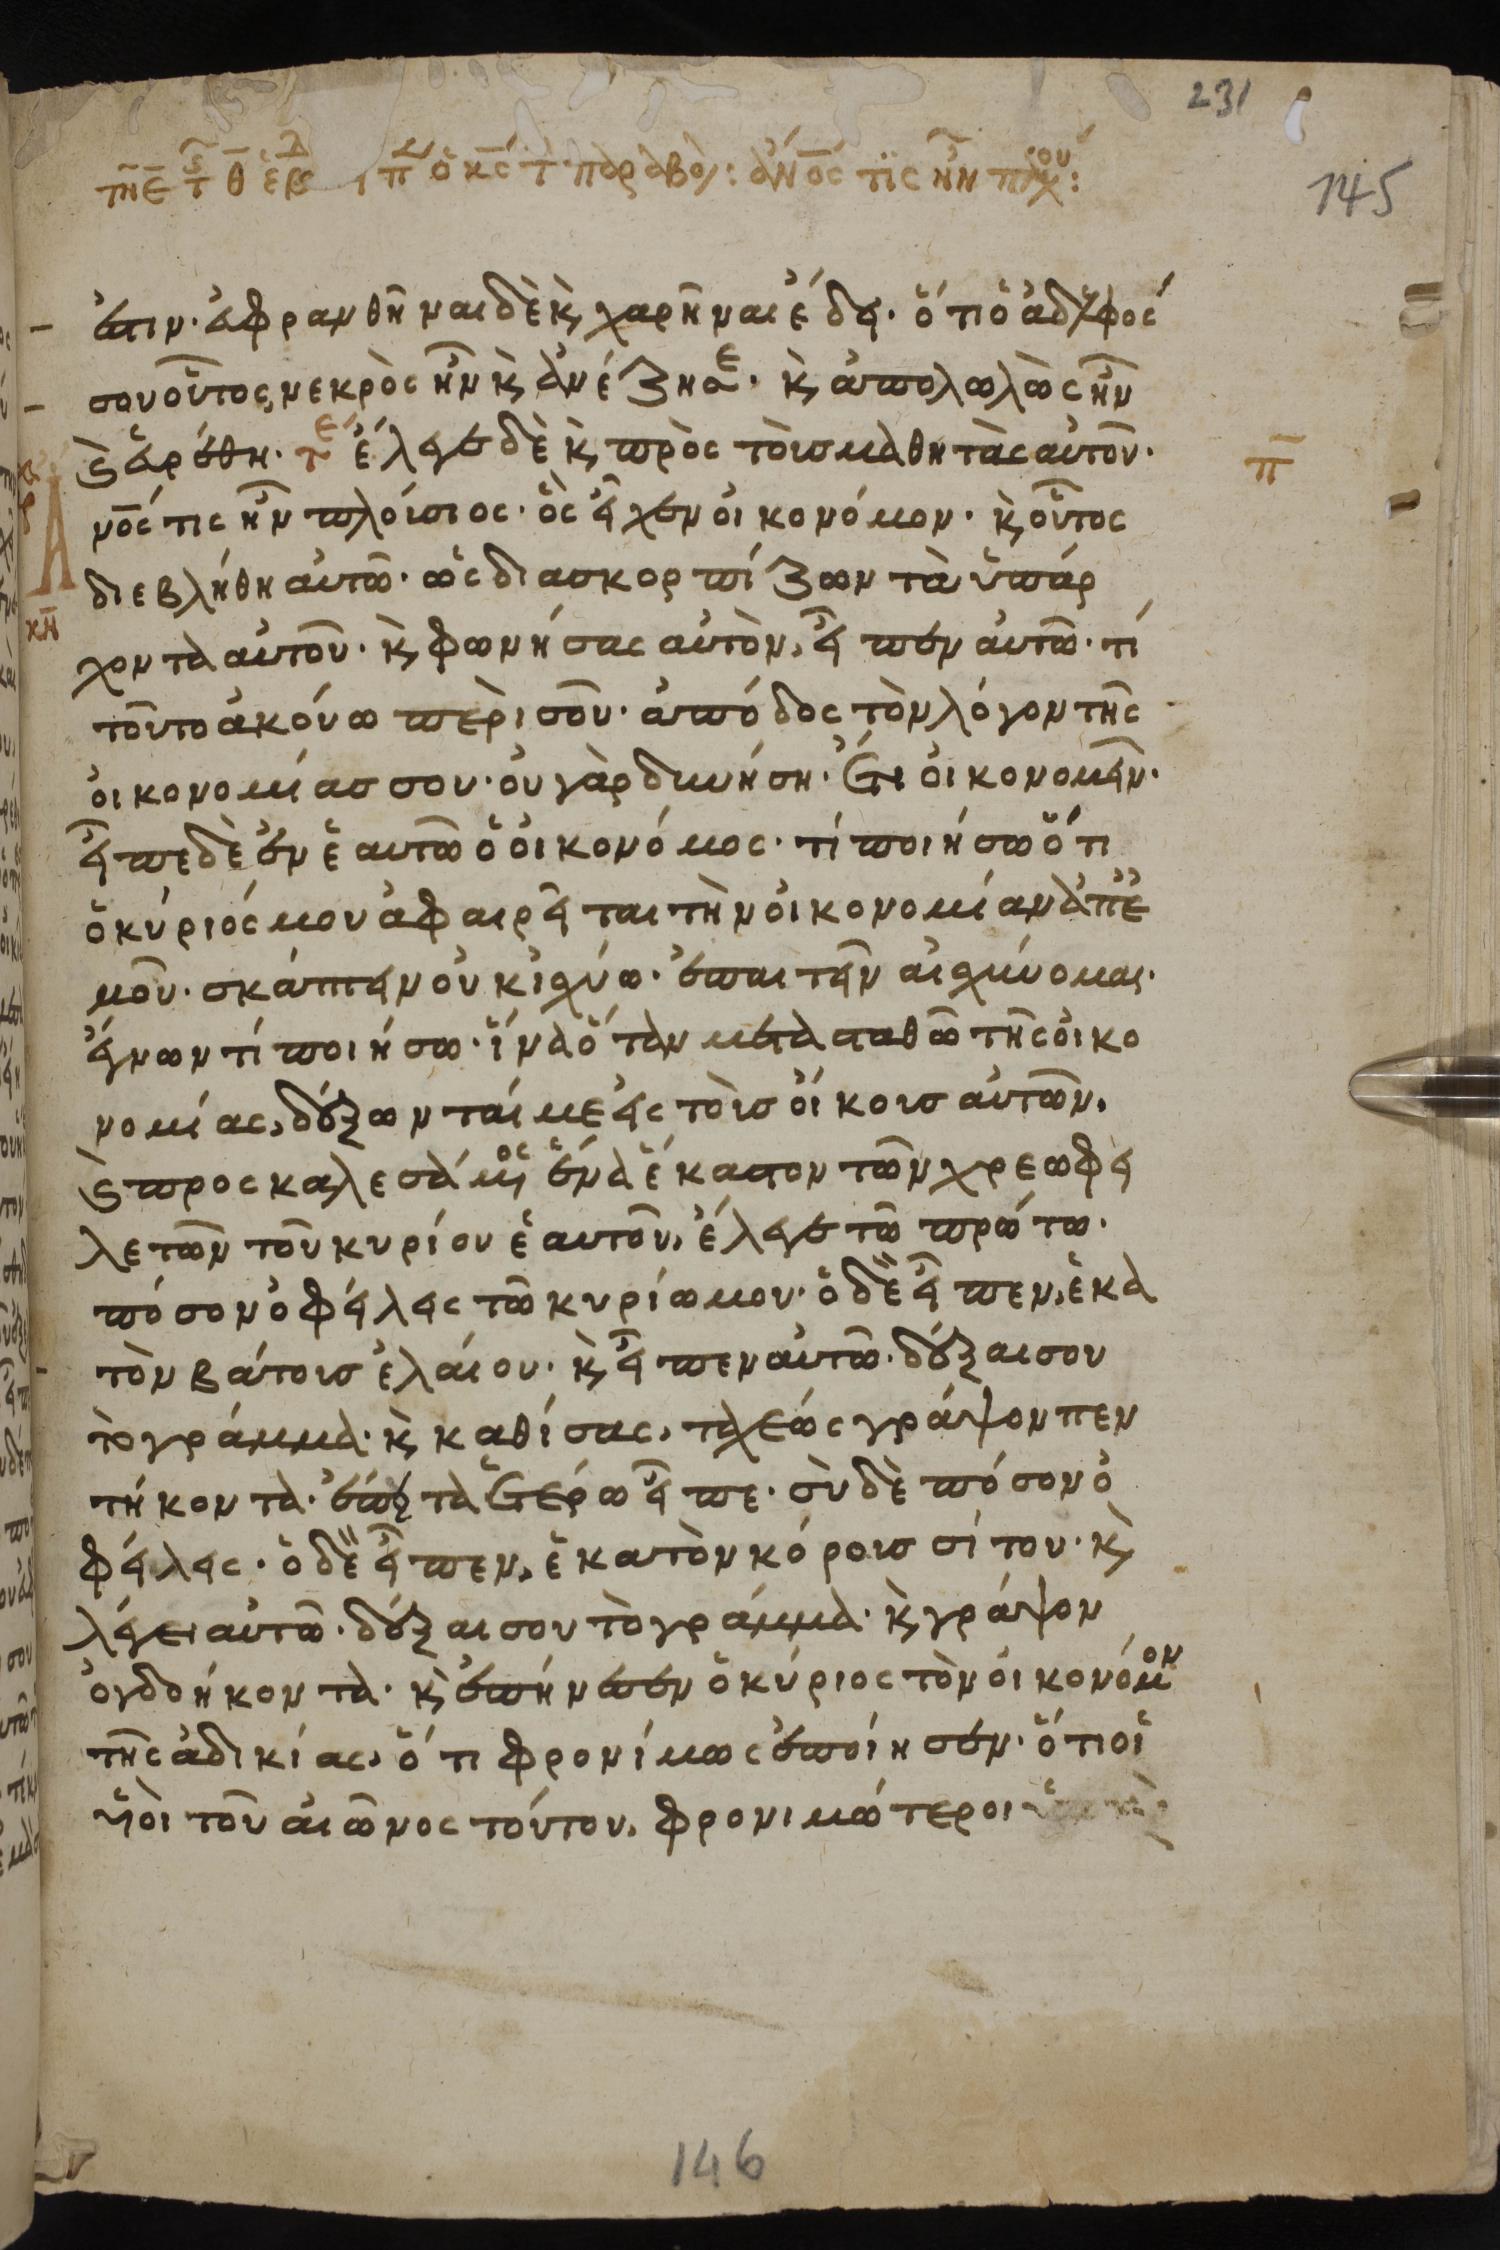 231
145
τῇ ε τ θ εβδ ειπ ο κς τ παραβολ: ανος τις ἦν πλχ:
ἐστιν· εὐφρανθῆναι δὲ κ, χαρῆναι ἔδει· ὅτι ὁ ἀδελφός
σου οὗτος, νεκρὸς ἦν κ, ἀνέζησε· κ, ἀπολωλὼς ἦν
κ, εὑρέθη· τέ ἔλεγε δὲ κ, πρὸς τοὺς μαθητὰς αὐτοῦ·
π
Α
κη
νός τις ἦν πλούσιος· ὃς εἶχεν οἰκονόμον· κ, οὗτος
διεβλήθη αὐτῶ· ὡς διασκορπίζων τὰ ὑπάρ
χοντα αὐτοῦ· κ, φωνήσας αὐτὸν, εἶπεν αὐτῶ· τί
τοῦτο ἀκούω περὶ σοῦ· ἀπόδος τὸν λόγον τῆς
οἰκονομίας σου· οὐ γὰρ δυνήση· ἔτι οἰκονομεῖν·
εἶπε δὲ ἐν ἑαυτῶ ὁ οἰκονόμος· τί ποιήσω ὅτι
ὁ κύριός μου ἀφαιρεῖται τὴν οἰκονομίαν ἀπ ἐ
μοῦ· σκάπτειν οὐκ ἰσχύω· ἐπαιτεῖν αἰσχύνομαι·
ἔγνων τί ποιήσω· ἵνα ὅταν μετασταθῶ τῆς οἰκο
νομίας, δέξωνταί με εἰς τοὺς οἴκους αὐτῶν,
κ, προσκαλεσάμενος ἕνα ἕκαστον τῶν χρεωφει
λετῶν τοῦ κυρίου ἑαυτοῦ, ἔλεγε τῶ πρώτω·
πόσον ὀφείλεις τῶ κυρίω μου· ὁ δὲ εἶπεν, ἑκα
τὸν βάτους ἐλαίου· κ, εἶπεν αὐτῶ· δέξαι σου
τὸ γράμμα· κ, καθίσας, ταχέως γράψον πεν
τήκοντα· ἔπειτα ἑτέρω εἶπε· σὺ δὲ πόσον ὀ
φείλεις· ὁ δὲ εἶπεν, ἑκατὸν κόρους σίτου· κ,
λέγει αὐτῶ· δέξαι σου τὸ γράμμα· κ, γράψον
ὀγδοήκοντα· κ, ἐπήνεσεν ὁ κύριος τὸν οἰκονόμον
τῆς ἀδικίας, ὅτι φρονίμως ἐποίησεν· ὅτι οἱ
υἱοὶ τοῦ αἰῶνος τούτου, φρονιμώτεροι
146